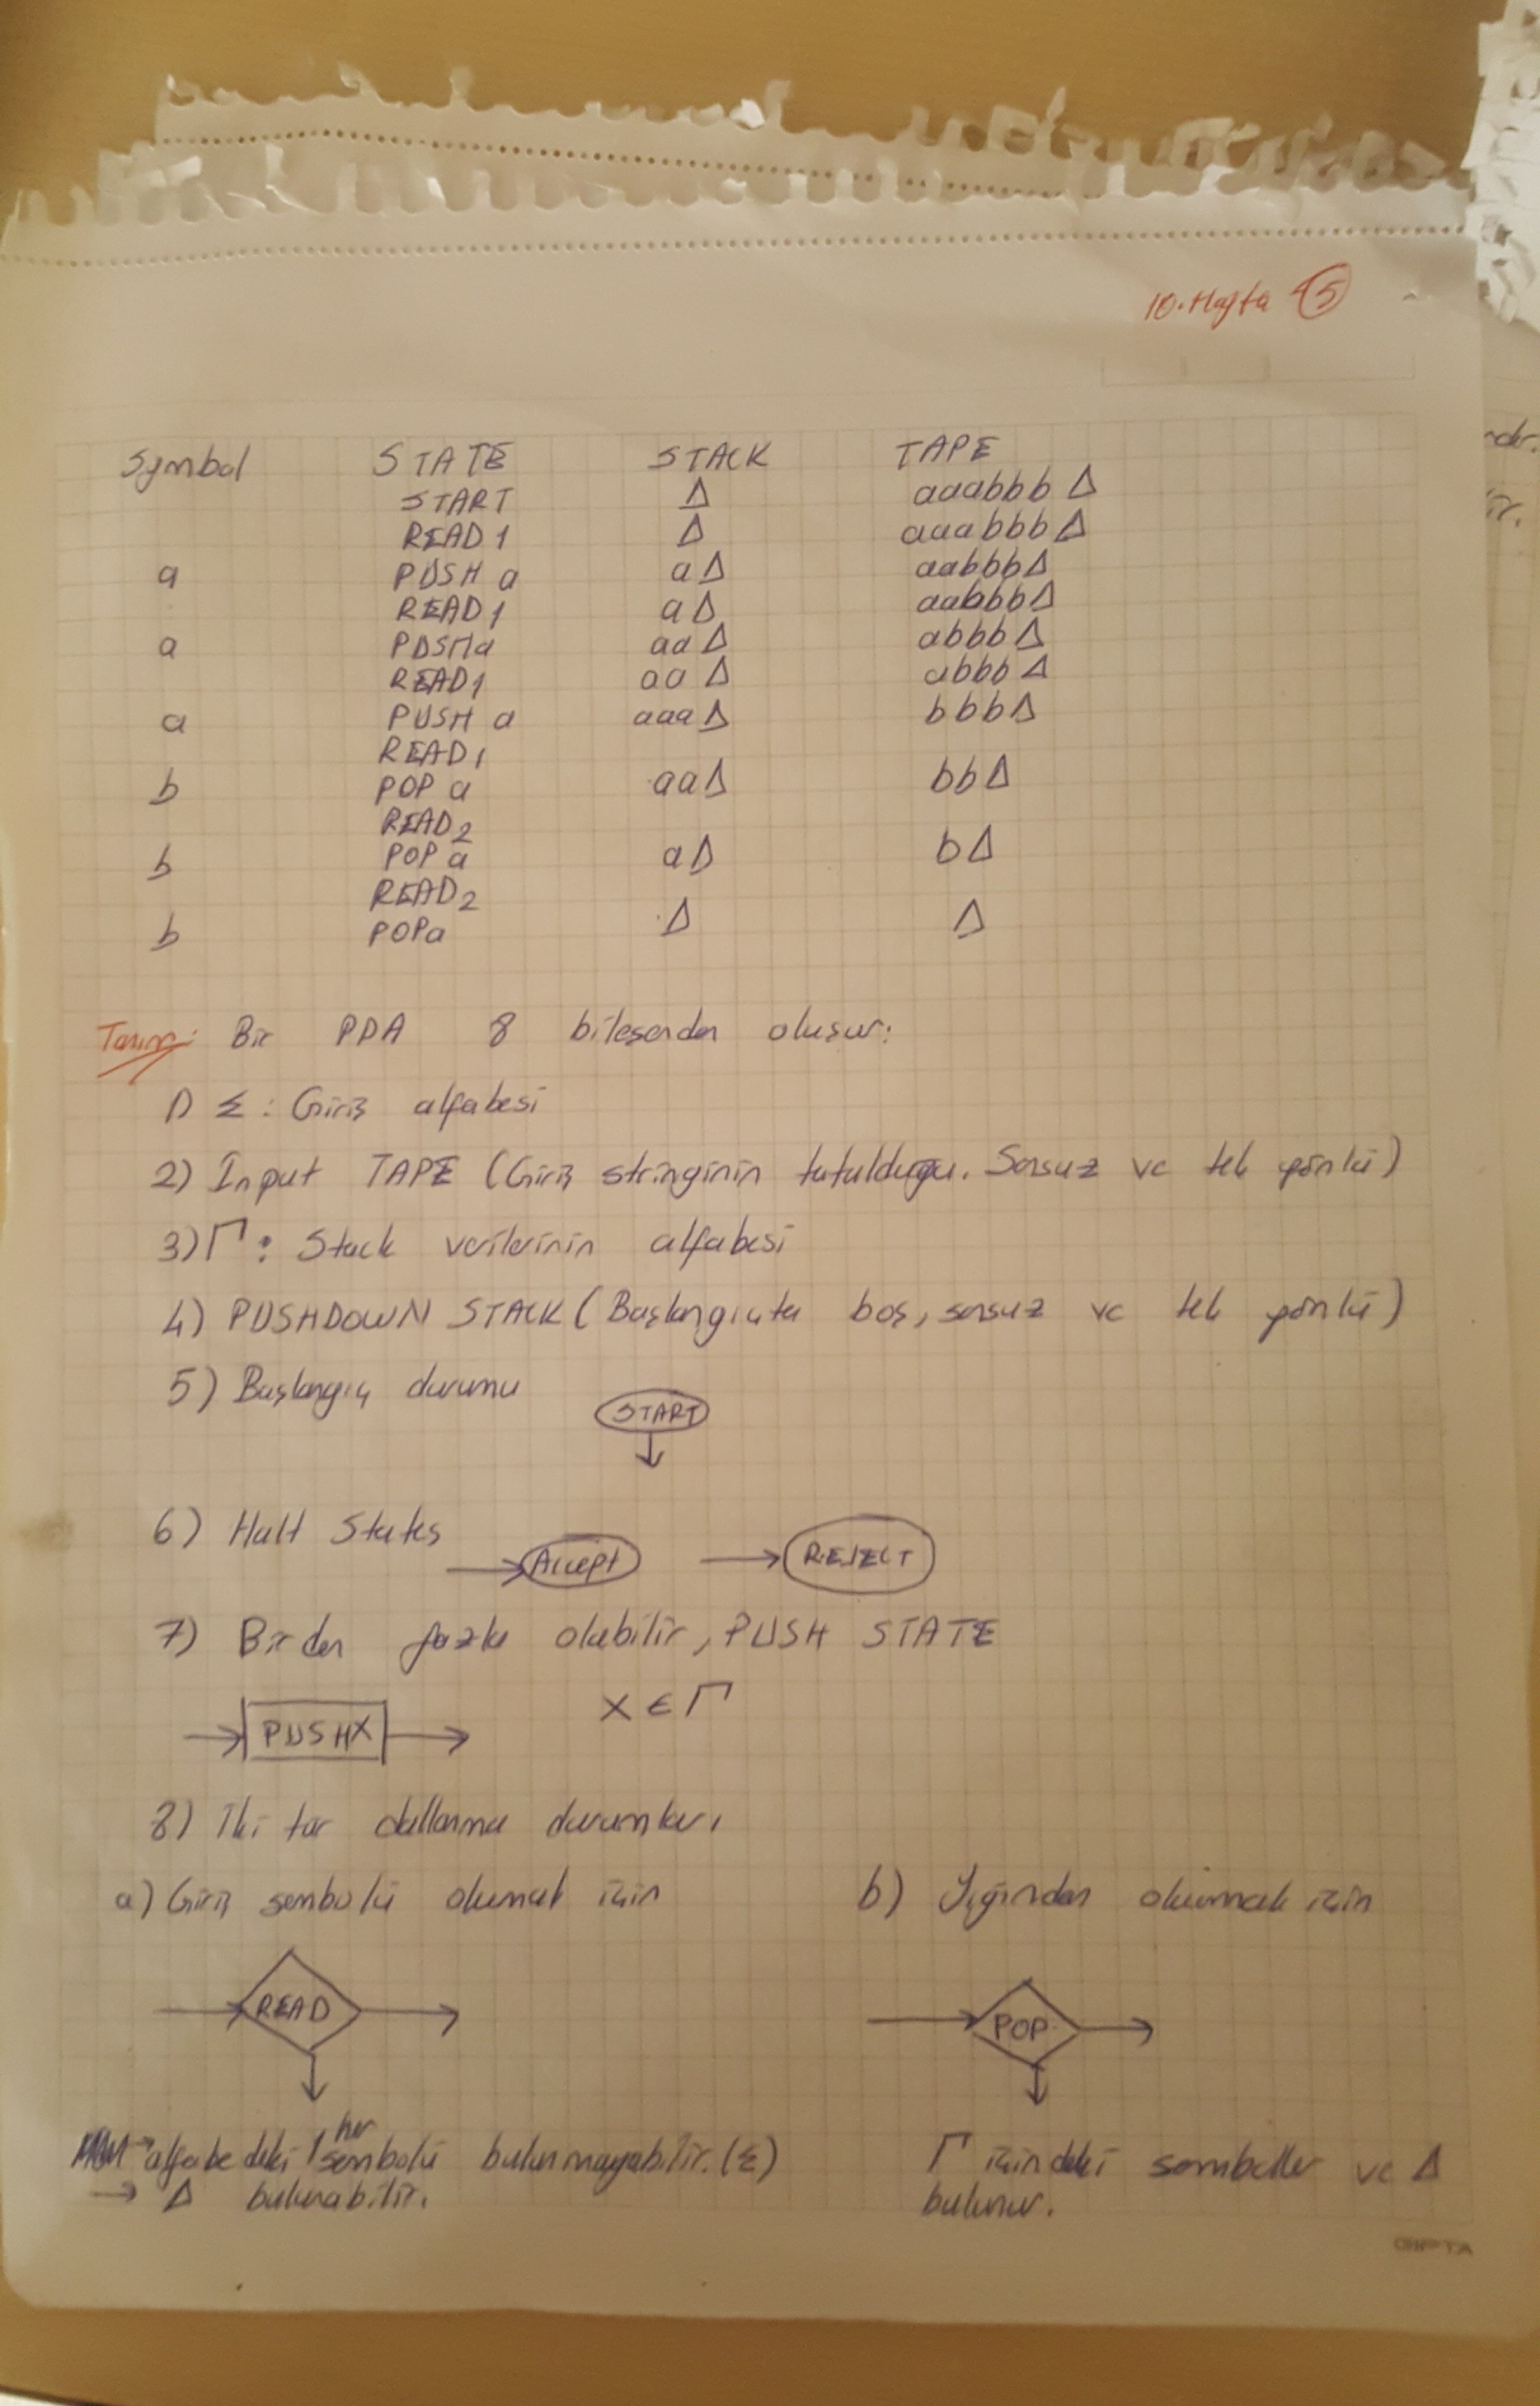 10.Hafta 5
Symbol STATE STACK TAPE
START Δ aaabbb Δ
READ1 Δ aaabbb Δ
a PUSH a a Δ aabbb Δ
READ1 a Δ aabbb Δ
a PUSH a aa Δ abbb Δ
READ1 aa Δ abbb Δ
a PUSH a aaa Δ bbb Δ
READ1
b POP a aa Δ bb Δ
READ2
b POP a a Δ b Δ
READ2
b POP a Δ Δ
Tanım: Bir PDA 8 bileşenden oluşur:
1) Σ : Giriş alfabesi
2) Input TAPE (Giriş stringinin tutulduğu. Sonsuz ve tek yönlü)
3) Γ : Stack verilerinin alfabesi
4) PUSHDOWN STACK (Başlangıçta boş, sonsuz ve tek yönlü)
5) Başlangıç durumu
START
6) Halt States
Accept REJECT
7) Birden fazla olabilir, PUSH STATE
PUSHX X ∈ Γ
8) İki tür dallanma durumları
a) Giriş sembolü okumak için b) Yığından okumak için
READ POP
→ alfabedeki her sembolü bulunmayabilir. (Σ) Γ içindeki semboller ve Δ
→ Δ bulunabilir. bulunur.
GIPTA